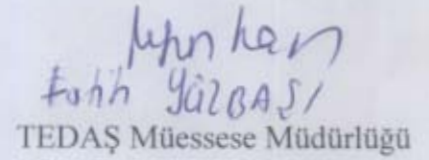 Fatih YÜZBAŞI
TEDAŞ Müessese Müdürlüğü